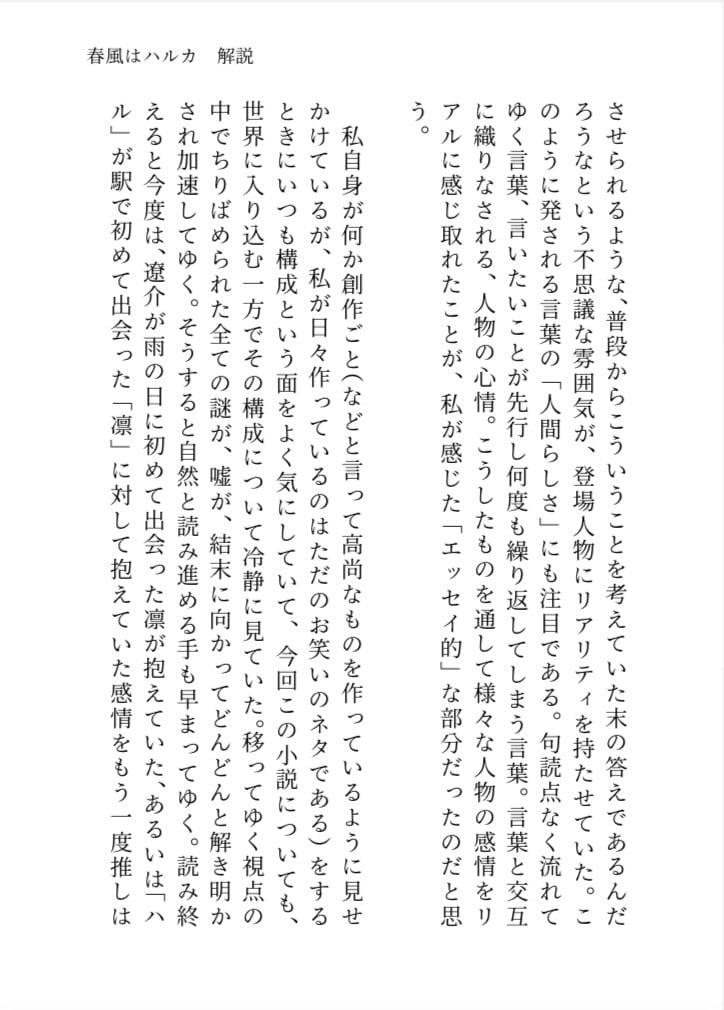 春風はハルカ　解説
させられるような、普段からこういうことを考えていた末の答えであるんだ
ろうなという不思議な雰囲気が、登場人物にリアリティを持たせていた。こ
のように発される言葉の「人間らしさ」にも注目である。句読点なく流れて
ゆく言葉、言いたいことが先行し何度も繰り返してしまう言葉。言葉と交互
に織りなされる、人物の心情。こうしたものを通して様々な人物の感情をリ
アルに感じ取れたことが、私が感じた「エッセイ的」な部分だったのだと思
う。
　私自身が何か創作ごと（などと言って高尚なものを作っているように見せ
かけているが、私が日々作っているのはただのお笑いのネタである）をする
ときにいつも構成という面をよく気にしていて、今回この小説についても、
世界に入り込む一方でその構成について冷静に見ていた。移ってゆく視点の
中でちりばめられた全ての謎が、嘘が、結末に向かってどんどんと解き明か
され加速してゆく。そうすると自然と読み進める手も早まってゆく。読み終
えると今度は、遼介が雨の日に初めて出会った凛が抱えていた、あるいは「ハ
ル」が駅で初めて出会った「凛」に対して抱えていた感情をもう一度推しは